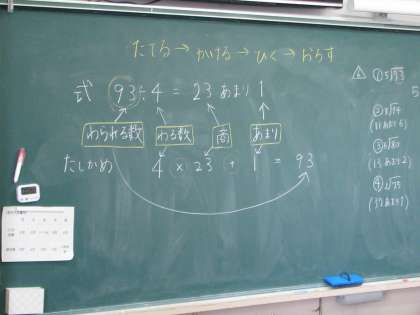 たてる→かける→ひく→おろす
式 93÷4=23あまり1
わられる数 わる数 商 あまり
たしかめ 4×23+1=93
① 5)93
(11あまり6)
(13あまり2)
④